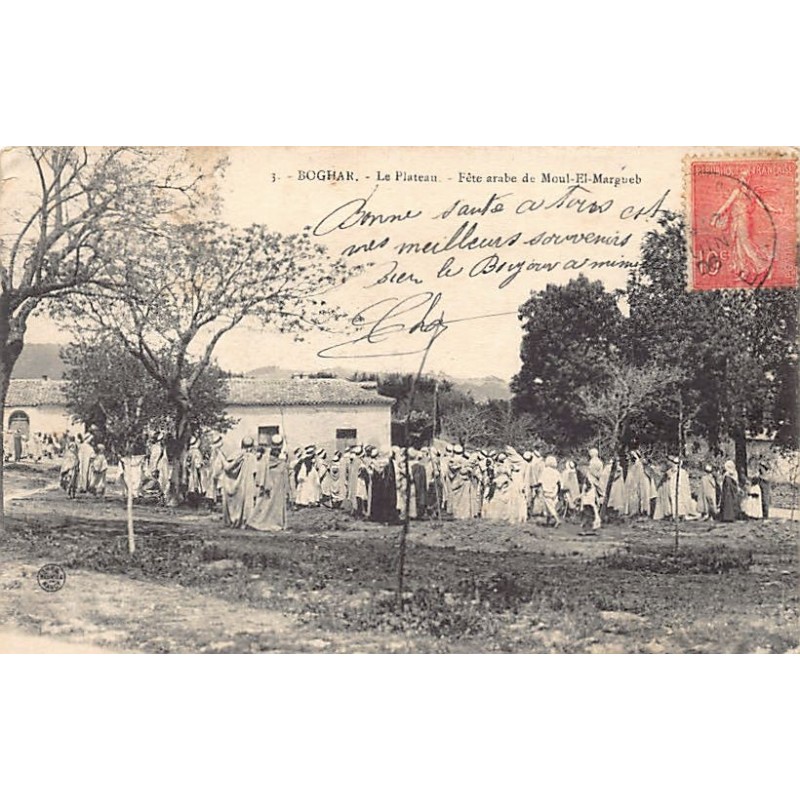 3. - BOGHAR. - Le Plateau. - Fête arabe de Moul-El-Margueb
Bonne santé a tous est
mes meilleurs souvenirs
bien le Bonjour a mimi
REPUBLIQUE FRANÇAISE